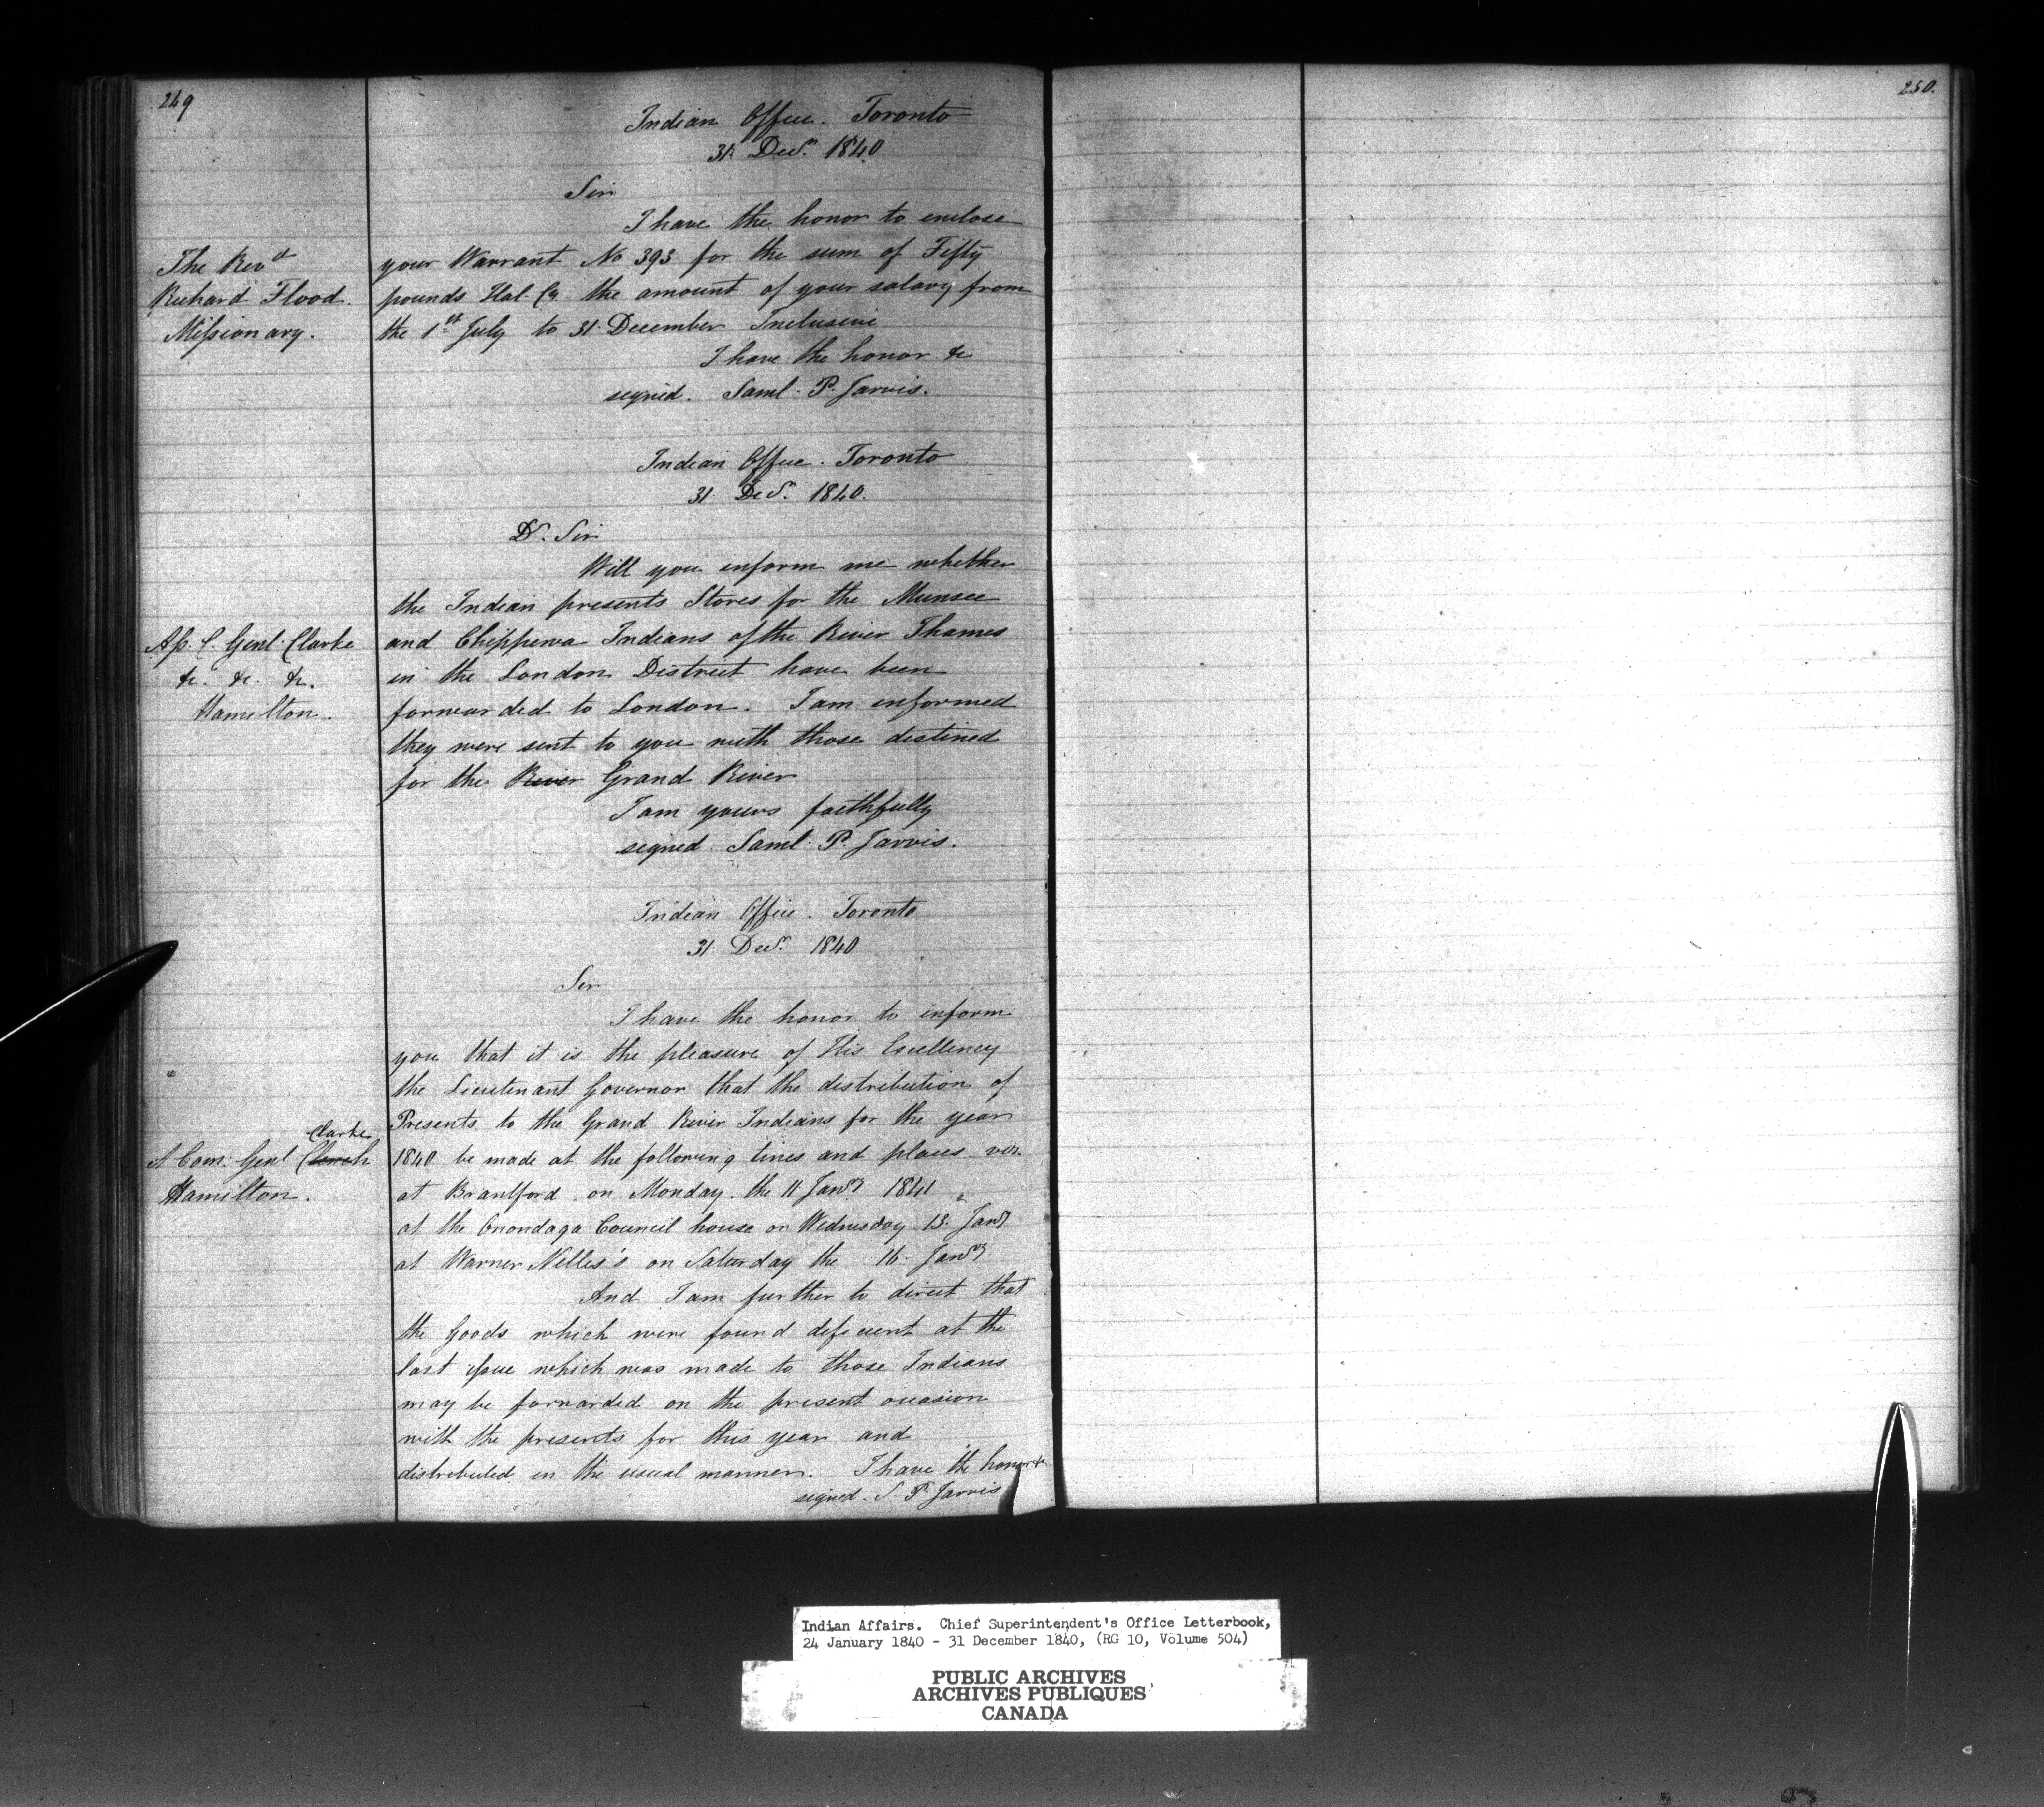 249
Indian Office. Toronto
31 Decr. 1840
Sir
I have the honor to enclose
The Revd
Richard Flood.
Missionary.
your Warrant No 393 for the sum of Fifty
pounds Hal. Cy the amount of your salary from
the 1st July to 31 December Inclusive
I have the honor &c
signed. Saml. P. Jarvis.
Indian Office. Toronto
31 Decr. 1840.
Dr. Sir
Will you inform me whether
the Indian presents Stores for the Munsee
Ass. C. Genl. Clarke
&c. &c. &c.
Hamilton.
and Chippewa Indians of the River Thames
in the London District have been
forwarded to London. I am informed
they were sent to you with those destined
for the River Grand River
I am yours faithfully
signed Saml. P. Jarvis.
Indian Office. Toronto
31 Decr. 1840
Sir
I have the honor to inform
you that it is the pleasure of His Excellency
the Lieutenant Governor that the distribution of
Presents to the Grand River Indians for the year
Clarke
A Com: Genl Clench
Hamilton.
1840 be made at the following times and places viz
at Brantford on Monday the 11 Jany 1841
at the Onondaga Council house on Wednesday 13. Jany
at Warner Nelles's on Saturday the 16. Jany
And I am further to direct that
the Goods which were found deficient at the
last issue which was made to those Indians
may be forwarded on the present occasion
with the presents for this year and
distributed in the usual manner. I have the honor &c
signed. S. P. Jarvis
250.
Indian Affairs. Chief Superintendent's Office Letterbook,
24 January 1840 - 31 December 1840, (RG 10, Volume 504)
PUBLIC ARCHIVES
ARCHIVES PUBLIQUES
CANADA